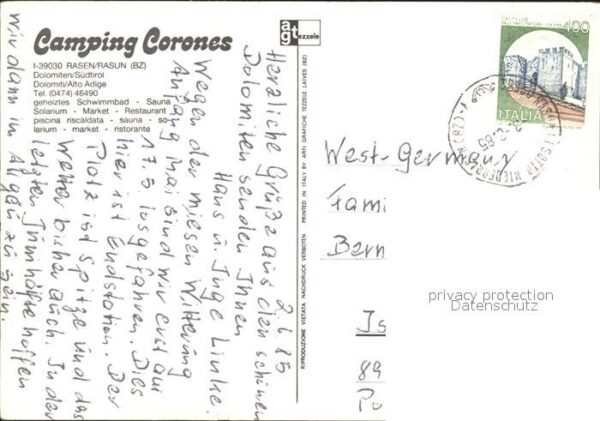 Camping Corones
I-39030 RASEN/RASUN (BZ)
Dolomiten/Südtirol
Dolomiti/Alto Adige
Tel. (0474) 46490
geheiztes Schwimmbad - Sauna
Solarium - Market - Restaurant
piscina riscaldata - sauna - so-
larium - market - ristorante
agt
tezzele
REPRODUZIONE VIETATA NACHDRUCK VERBOTEN PRINTED IN ITALY BY ARTI GRAFICHE TEZZELE LAIVES (BZ)
400
ITALIA
2.6.85
Herzliche Grüße aus den schönen
Dolomiten senden Ihnen
Hans u. Inge Linke.
Wegen der miesen Witterung
Anfang mai sind wir erst am
17.5 losgefahren. Dies
hier ist Endstation. Der
Platz ist spitze und das
Wetter bisher auch. In der
letzten Junihälfte hoffen
wir dann im Allgäu zu sein.
West-Germany
Fami
Bern
Is
89
privacy protection
Datenschutz